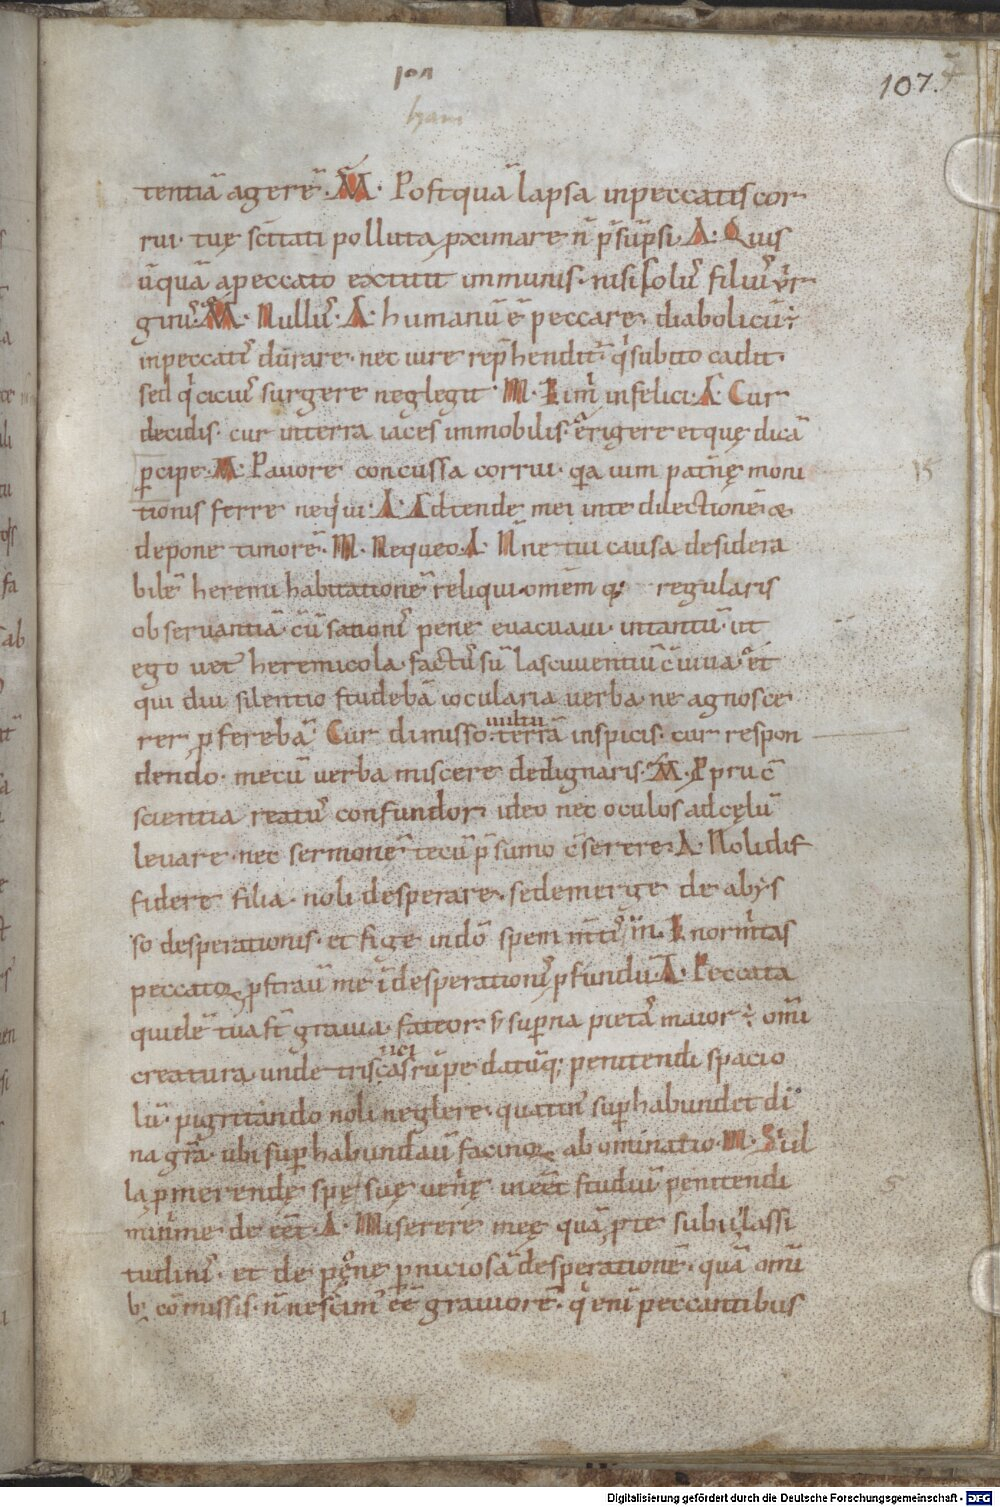 ion
ham
107.
tentiā agerē. M̄. Postquā lapsa inpeccatis cor
rui. tuę sc̄itati polluta ꝓximare n̄ p̄sūpsi. A. Quis
ūquā apeccato extitit immunis. nisi solus filius v̓r
ginis. M. Nullus. A. humanū ē peccare. diabolicū
inpeccatis durare. nec iure rep̄henditur q̓ subito cadit.
sed q̓ cicius surgere neglegit. M. infelici. A. Cur
decidis. cur interra iaces immobilis. erigere et quę dicā
ꝑcipe. M. Pauore concussa corrui. q̓a uim paternę moni
tionis ferre nequiui. A. Adtende mei inte dilectionē &
depone timorē. M. Nequeo. A. Nn̄ne tui causa desidera
bilē heremi habitationē reliqui. omēmq; regularis
obseruantiā. cūsationis pene euacuaui. intantū. ut
ego uerus heremicola. factus sū lasciuientiū cūuiua. et
qui diu silentio studebā iocularia uerba ne agnosce
rer ꝓferebā. Cur dimisso uultu terrā inspicis. cur respon
dendo. mecū uerba miscere dedignaris. M. Pprii c̄
scientia reatus confundor. ideo nec oculos ad cęlū
leuare. nec sermonē tecū p̄sumo c̄serere. A. Noli dif
fidere filia. noli desperare. sed emerge de abys
so desperationis. et fige in dō spem mentis. M. Enormitas
peccatoꝝ ꝓstrauit me ī desperationis ꝓfundū. A. Peccata
quidē tua sunt grauia. fateor. s; suꝑna pietas maior ē omī
creatura. unde tristicias rūpe datumq; penitendi spacio
lū. pigritando noli neglere. quatinus suꝑhabundet di
na gr̄a. ubi suꝑhabundauit facinoꝝ abominatio. M. Si ul
la ꝓmerendę spes suę uenię. inēet studiū penitendi
minime de eēt. A. Miserere meę quā pro te subii lassi
tudinis. et de pone ꝑniciosā desperationē. quā omī
b; cōmissis. n̄ nescimus eē grauiorē. q̓ enī peccantibus
Digitalisierung gefördert durch die Deutsche Forschungsgemeinschaft - DFG